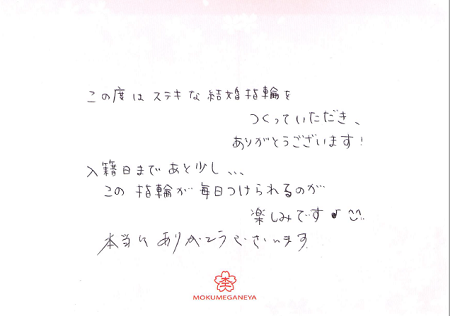 この度は ステキな 結婚指輪を
つくっていただき、
ありがとうございます!
入籍日まで あと少し、、、
この 指輪が 毎日つけられるのが
楽しみです♪ ^^
本当に ありがとうございます
杢
MOKUMEGANEYA